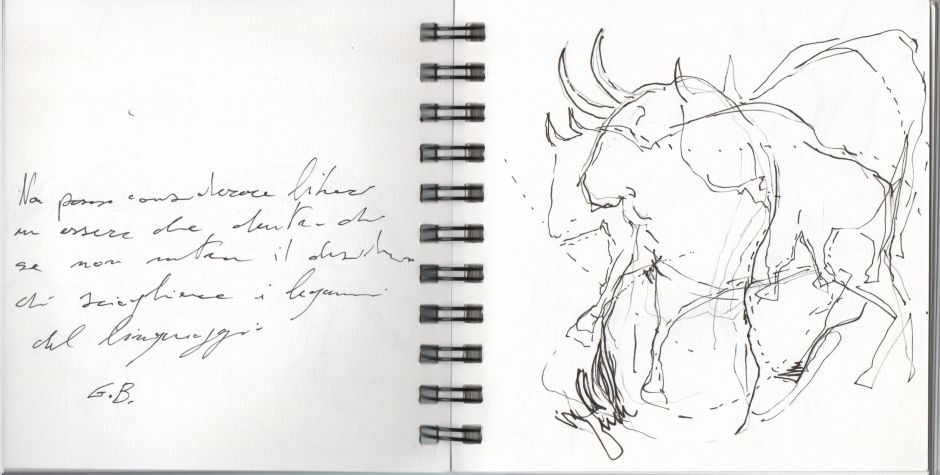 Non posso considerare libero
un essere che dentro di
se non nutra il desiderio
di sciogliere i legami
del linguaggio
G.B.